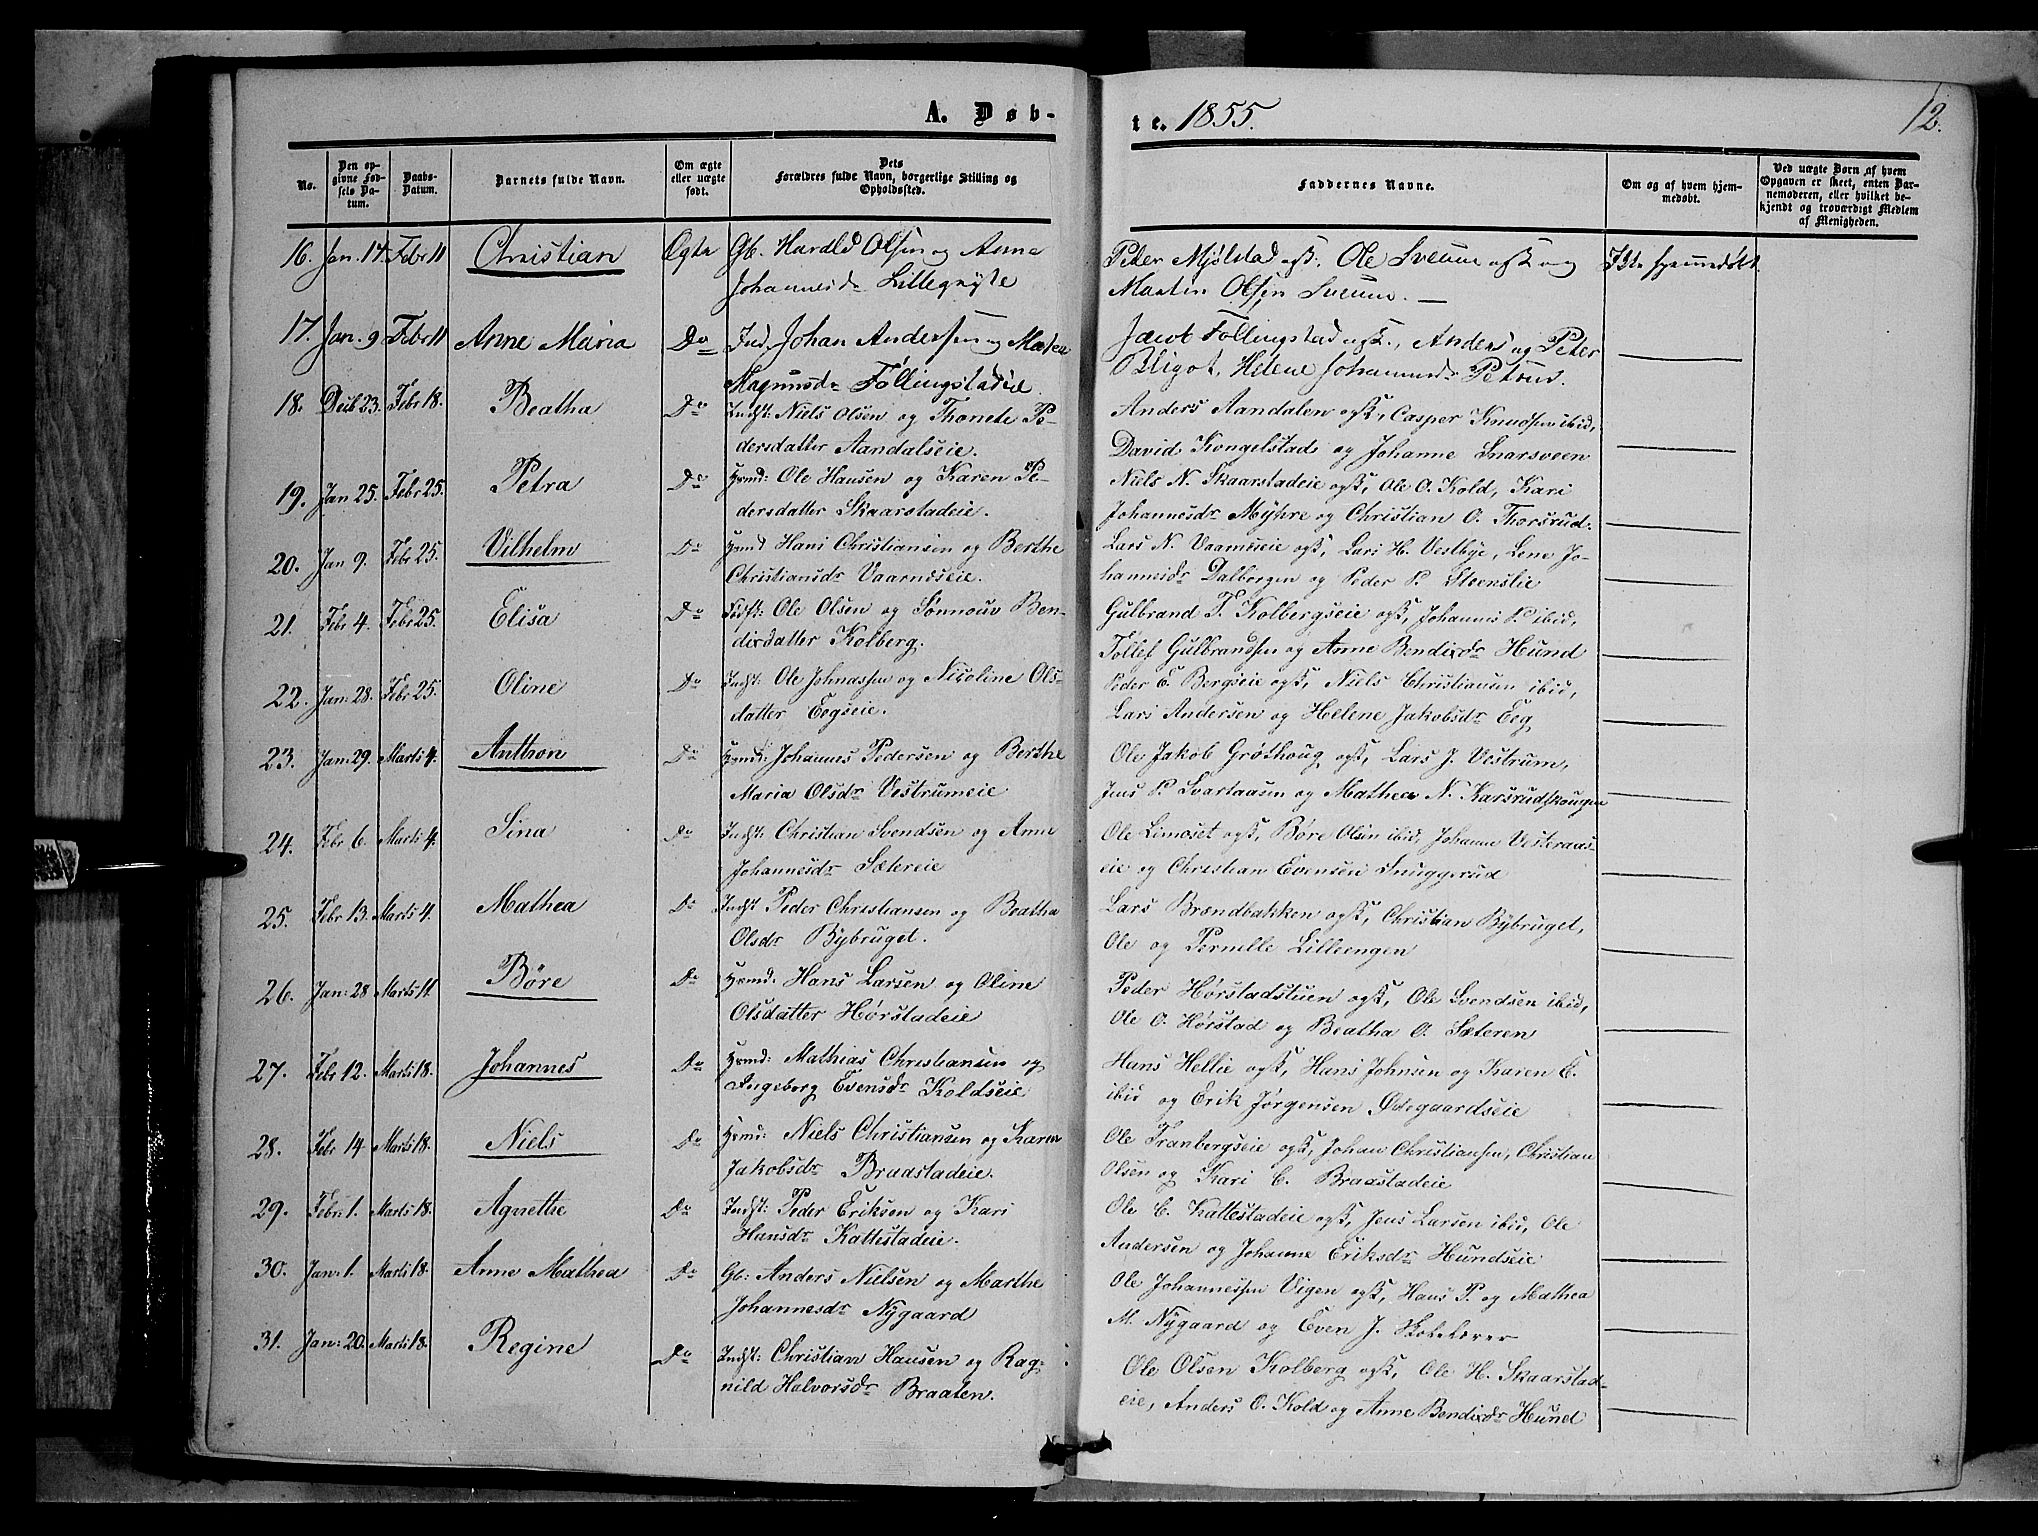 A. Døb-
te. 1855.
12.
No.
Den op-
givne Fød-
sels Da-
tum.
Daabs-
Datum.
Barnets fulde Navn.
Om ægte
eller uægte
født.
Dets
Forældres fulde Navn, borgerlige Stilling og
Opholdssted.
Faddernes Navne.
Om og af hvem hjem-
medøbt.
Ved uægte Børn af hvem
Opgaven er skeet, enten Bar-
nemoderen, eller hvilket be-
kjendt og troværdigt Medlem
af Menigheden.
16. Jan. 14. Febr 11 Christian Ægte Gb. Harald Olsen og Anne
Johannesdr
Peter Mjølstad ogst. Ole Sveum ogst og Ikke hjemmedøbt.
Martin Olsen Sveum. —
17. Jan. 9 Febr 11 Anne Maria Do Ind. Johan Andersen og
Magnusdr Føllingstadeie.
Jacob Føllingstad ogst., Anders og Peter
Helene Johannesdr
18. Decb 23. Febr 18. Beatha Do Indst: Niels Olsen og Thonete Pe-
dersdatter Aandalseie.
Anders Aandalen ogst, Casper Knudsen ibid,
David Kongelstad og Johanne Snarsveen
19. Jan 25. Febr 25. Petra Do Hvmd: Ole Hansen og Karen Pe-
dersdatter Skaarstadeie.
Niels N. Skaarstadeie ogst, Ole O. Kold, Kari
Johannesdr Myhre og Christian O. Thorsrud.
20. Jan 9. Febr 25. Vilhelm Do Hvmd Hans Christiansen og Berthe
Christiansdr Vaarnæseie.
Lars N. ogst, Lars H. Vestbye, Lene Jo-
hannesdr Dalborgen og Peder P. Steenslie
21. Febr 4. Febr 25. Elisa Do Fødst: Ole Olsen og Sønnouv Ben-
dixdatter Kolberg.
Gulbrand T. Kolbergseie ogst, Johannes P. ibid,
Tollef Gulbrandsen og Anne Bendixdr Hund
22. Jan: 28. Febr 25. Oline Do Indst: Ole Johnassen og Nicoline Ols-
datter Eegseie.
Peder E. Bergseie ogst, Niels Christiansen ibid,
Lars Andersen og Helene Jakobsdr Eeg
23. Jan: 29. Marts 4. Anthon Do Hvmd: Johannes Pedersen og Berthe
Maria Olsdr Vestrumeie
Ole Jakob Grøthoug ogst, Lars J. Vestrum,
Jens P. Svartaasen og Mathea N. Karsrudskougen
24. Febr 6. Marts 4. Sina Do Indst: Christian Svendsen og Anne
Johannesdr Sætereie
Ole Limoset ogst, Børe Olsen ibid, Johanne Vesteraas-
eie og Christian Evensen Snuggerud
25. Febr 13. Marts 4. Mathea Do Indst Peder Christiansen og Beatha
Olsdr Bybruget.
Lars Brændbakken ogst, Christian Bybruget,
Ole og Pernille Lilleengen
26. Jan: 28 Marts 11. Børe Do Hvmd. Hans Larsen og Oline
Olsdatter Hørstadeie
Peder Hørstadstuen ogst, Ole Svendsen ibid,
Ole O. Hørstad og Beatha O. Sæteren
27. Febr 12. Marts 18. Johannes Do Hvmd: Mathias Christiansen og
Ingeborg Evensdr Koldseie
Hans Hellie ogst, Hans Johnsen og Karen E.
ibid og Erik Jørgensen Ødegaardseie
28. Febr 14 Marts 18. Niels Do Hvmd: Niels Christiansen og Karen
Jakobsdr Braastadeie.
Ole Tranbergseie ogst, Johan Christiansen, Christian
Olsen og Kari C. Braastadeie
29. Febr: 1. Marts 18. Agnethe Do Indst: Peder Eriksen og Kari
Hansdr Kattestadeie.
Ole E. Kattestadeie ogst, Jens Larsen ibid, Ole
Andersen og Johanne Eriksdr Hundseie
30. Jan: 1. Marts 18. Anne Mathea Do Gb: Anders Nielsen og Marthe
Johannesdr Nygaard
Ole Johannessen Vigen ogst, Hans P. og Mathea
M. Nygaard og Even J. Skolelærer
31. Jan: 20. Marts 18. Regine Do Indst: Christian Hansen og Rag-
nild Halvorsdr Braaten.
Ole Olsen Kolberg ogst, Ole H. Skaarstad-
eie, Anders O. Kold og Anne Bendixdr Hund